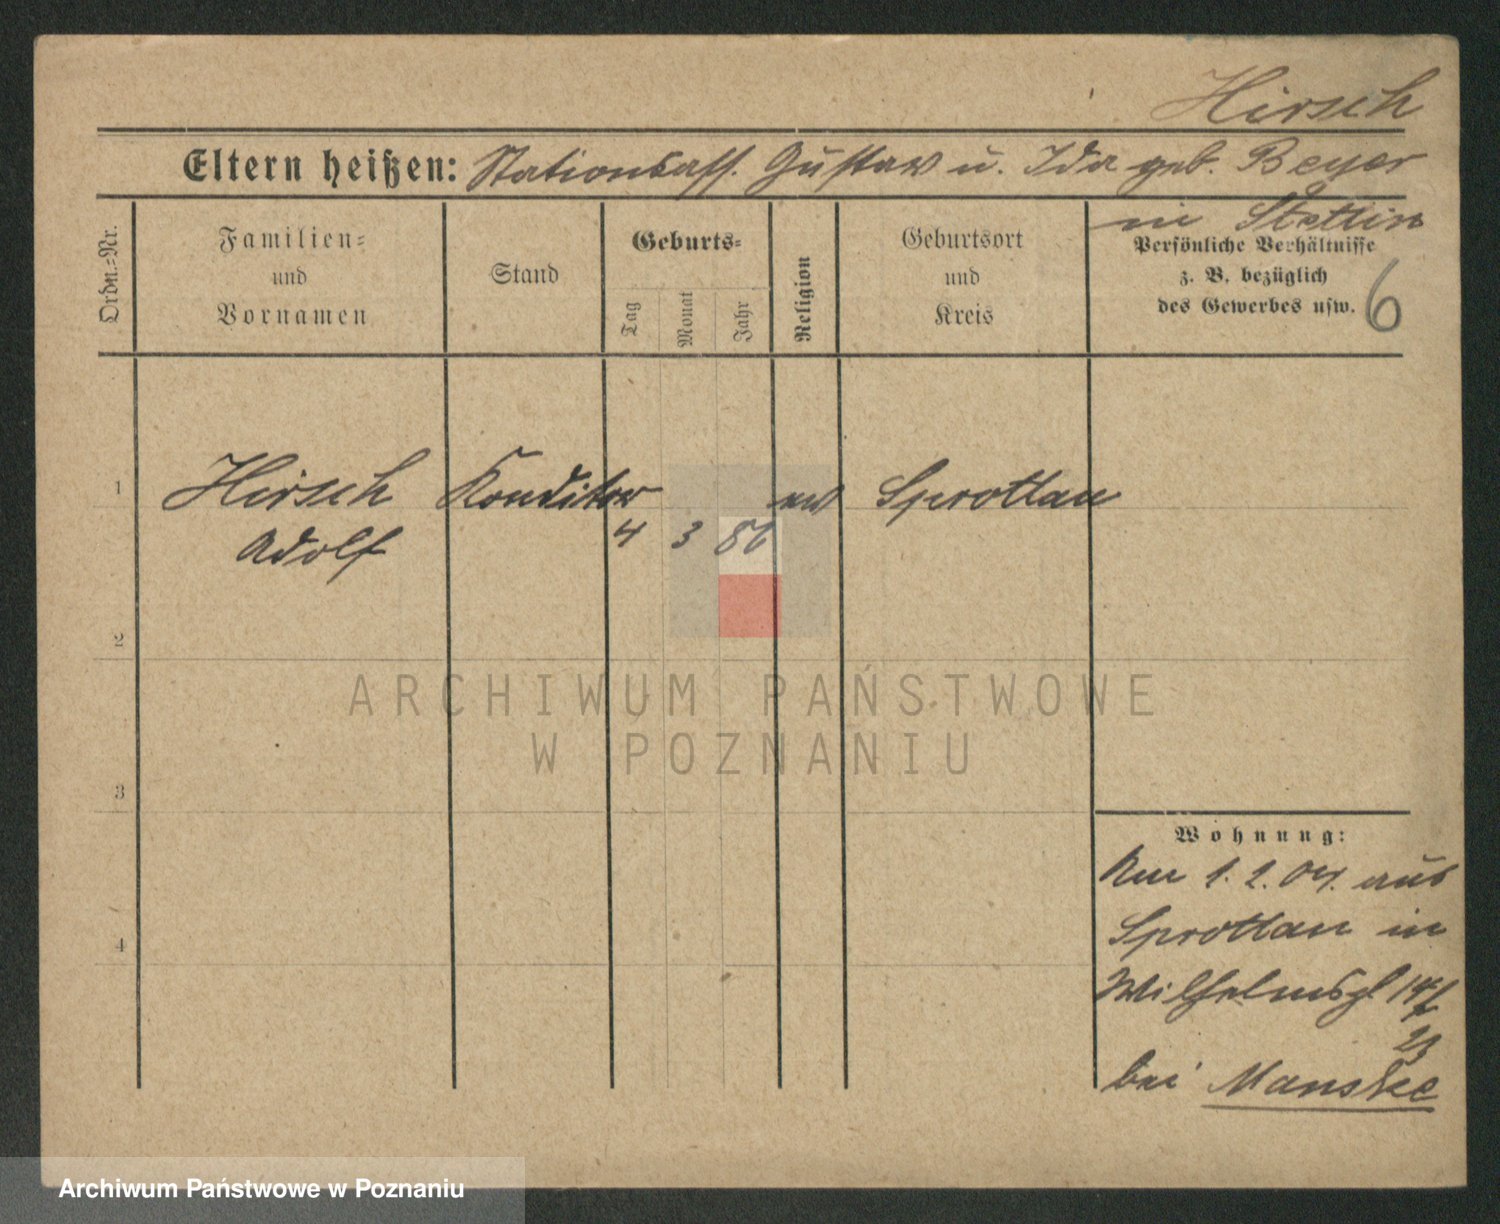 Hirsch
Eltern heißen: Stationsass. Gustav u. Ida geb. Beyer
in Stettin
Ordn.-Nr.
Familien-
und
Vornamen
Stand
Geburts-
Tag
Monat
Jahr
Religion
Geburtsort
und
Kreis
Persönliche Verhältnisse
z. B. bezüglich
des Gewerbes usw.
6
1 Hirsch Konditor ev Sprottau
Adolf 4 3 86
2
3
4
Wohnung:
1. 2. 04. aus
Sprottau in
Wilhelmspl 14/
bei Manske
ARCHIWUM PAŃSTWOWE
W POZNANIU
Archiwum Państwowe w Poznaniu